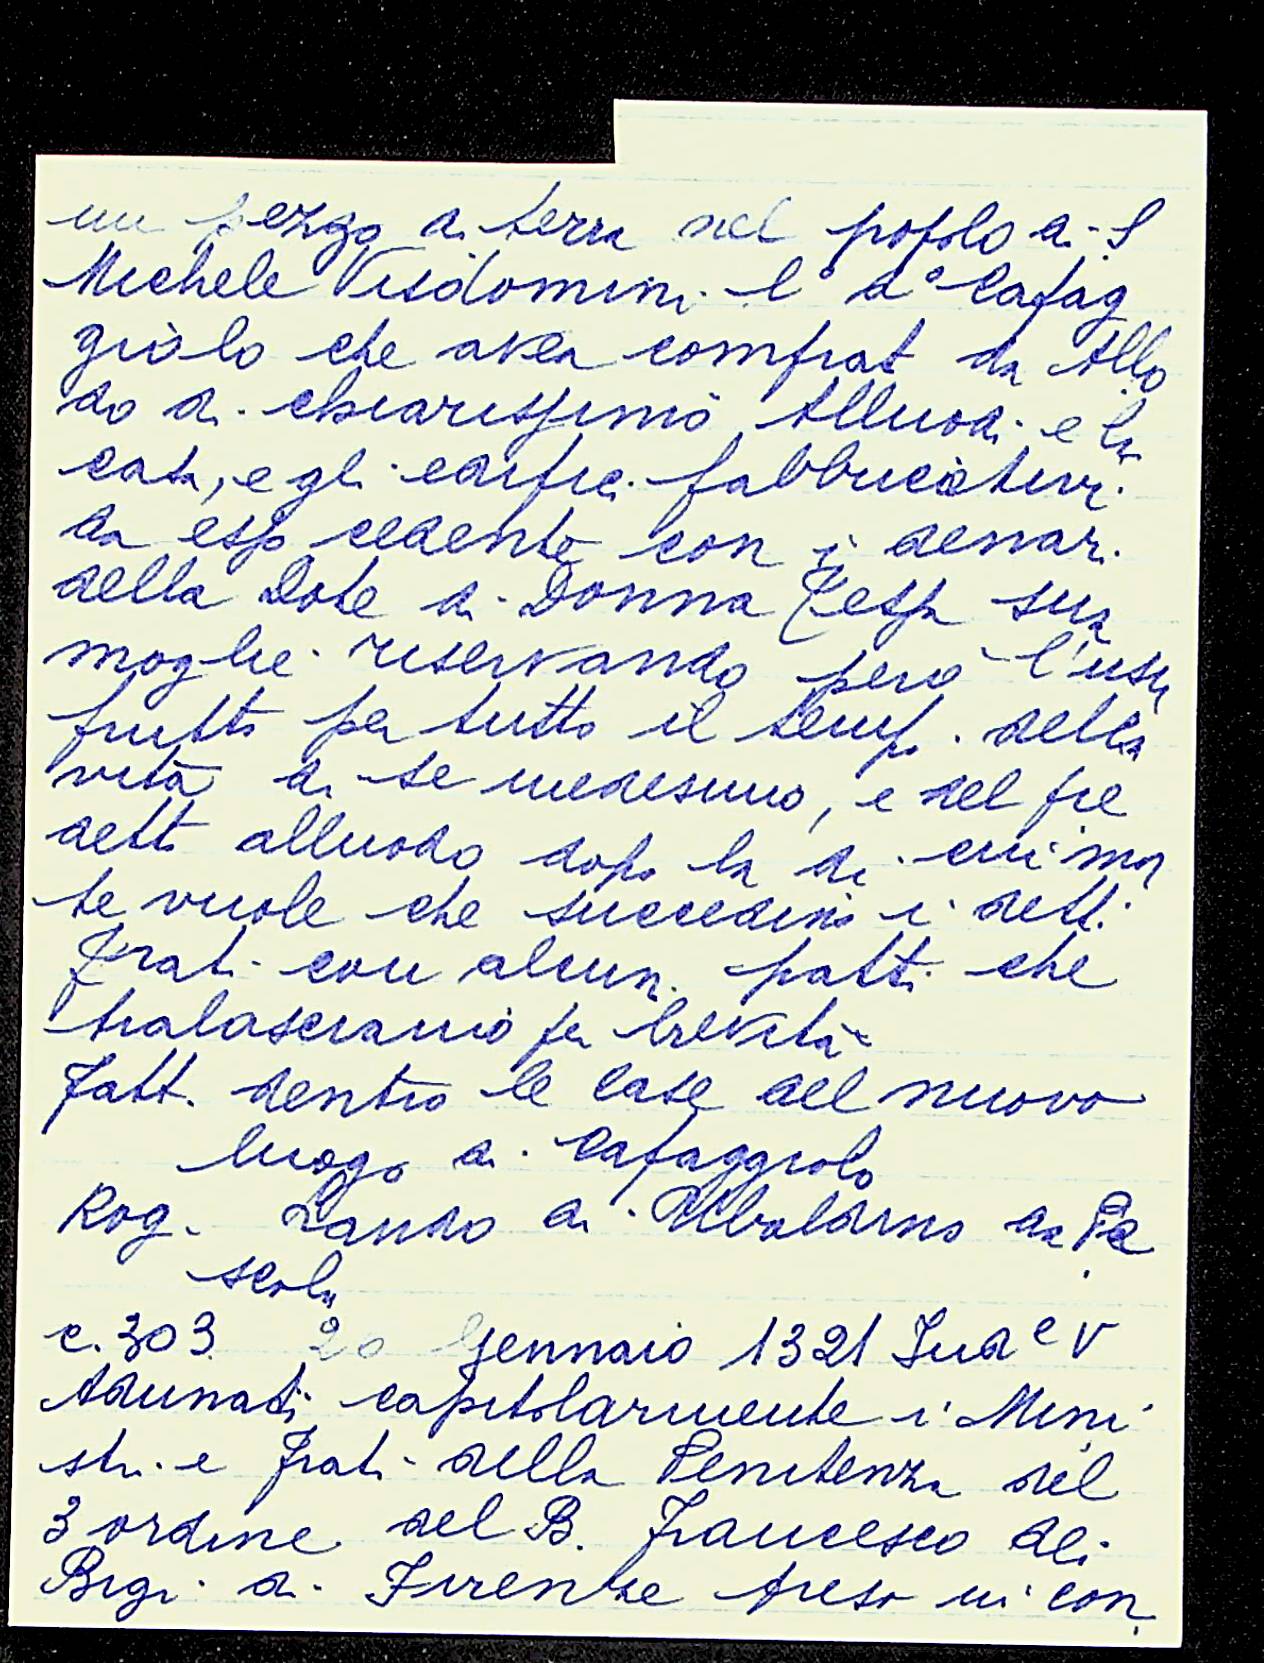 un pezzo di terra nel popolo di S
Michele Visdomini l° d° Cafag
giolo che avea comprat da Allo
do di chiarissimo Alluodi e la
casa, e gli edifici fabbricativi
da esso cedente con i denari
della Dote di Donna Tessa sua
moglie riservando però l'usu
frutto per tutto il tempo della
vita di se medesimo, e del pre
detto alluodo dopo la di cui mor
te vuole che succedino i detti
Frati con alcuni patti che
tralasciamo per brevità
Fatt. dentro le case del nuovo
luogo di Cafaggiolo
Rog. Lando di Ubaldino da Pe
scola
c. 303. 20 Gennaio 1321 Ind e V
Adunati capitolarmente i Mini
stri e Frati della Penitenza del
3 ordine del B. Francesco dei
Bigi di Firenze preso in con